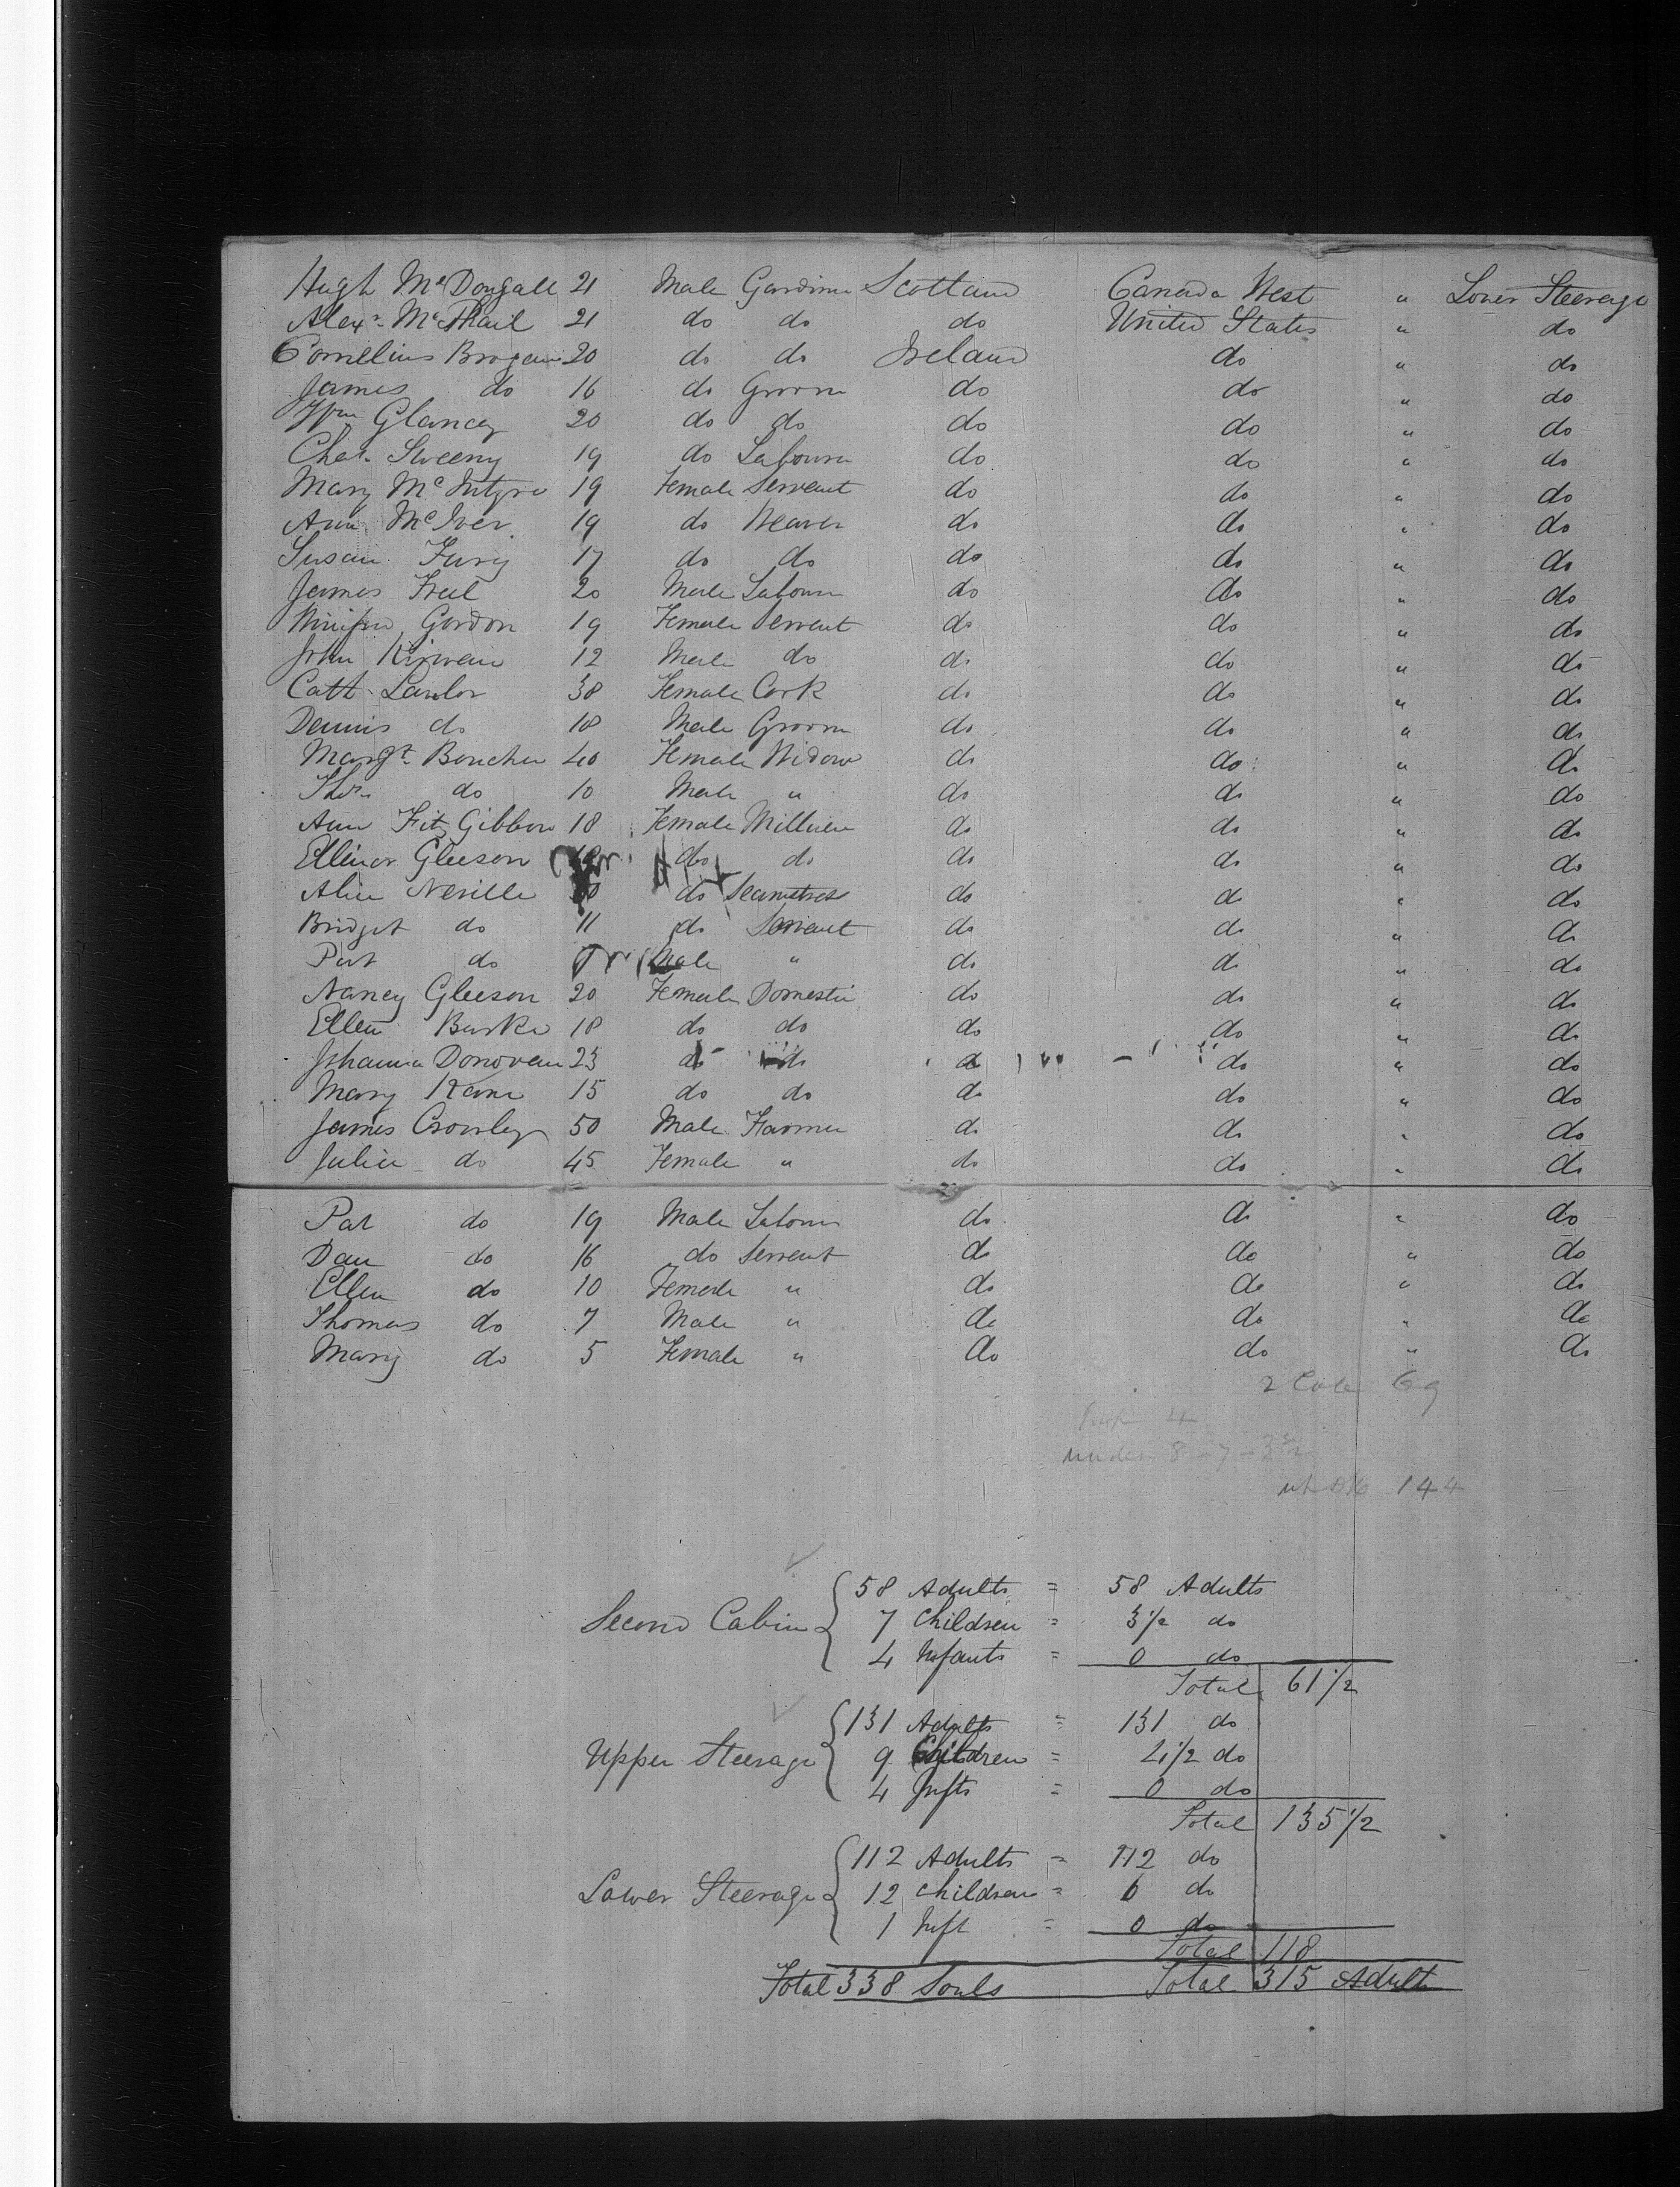 Hugh McDougall 21 Male Gardiner Scotland Canada West " Lower Steerage
Alexr. McPhail 21 do do do United States " do
Cornelius Brogan 20 do do Ireland do " do
James do 16 do Groom do do " do
Wm Glancey 20 do do do do " do
Chas. Sweeny 19 do Labourer do do " do
Mary McIntyre 19 Female Servant do do " do
Ann McIver 19 do Weaver do do " do
Susan Fury 17 do do do do " do
James Freel 20 Male Labourer do do " do
Winifred Gordon 19 Female Servant do do " do
John Kirwan 12 Male do do do " do
Cath Lawlor 38 Female Cook do do " do
Dennis do 18 Male Groom do do " do
Margt. Boucher 40 Female Widow do do " do
Thos do 10 Male " do do " do
Ann FitzGibbon 18 Female Milliner do do " do
Ellinor Gleeson do do do do " do
Alice Neville do Seamstress do do " do
Bridget do 11 do Servant do do " do
Pat do Male " do do " do
Nancy Gleeson 20 Female Domestic do do " do
Ellen Burke 18 do do do do " do
Johanna Donovan 23 do do do do " do
Mary Kane 15 do do do do " do
James Crowley 50 Male Farmer do do " do
Julia do 45 Female " do do " do
Pat do 19 Male Labourer do do " do
Dan do 16 do Servant do do " do
Ellen do 10 Female " do do " do
Thomas do 7 Male " do do " do
Mary do 5 Female " do do " do
2 69
4
under 8 - 7 - 3 1/2
144
58 Adults = 58 Adults
Second Cabin 7 Children = 3 1/2 do
4 Infants = 0 do
Total 61 1/2
131 Adults = 131 do
Upper Steerage 9 Children = 4 1/2 do
4 Infts = 0 do
Total 135 1/2
112 Adults = 112 do
Lower Steerage 12 Children = 6 do
1 Inft = 0 do
Total 118
Total 338 Souls Total 315 Adults